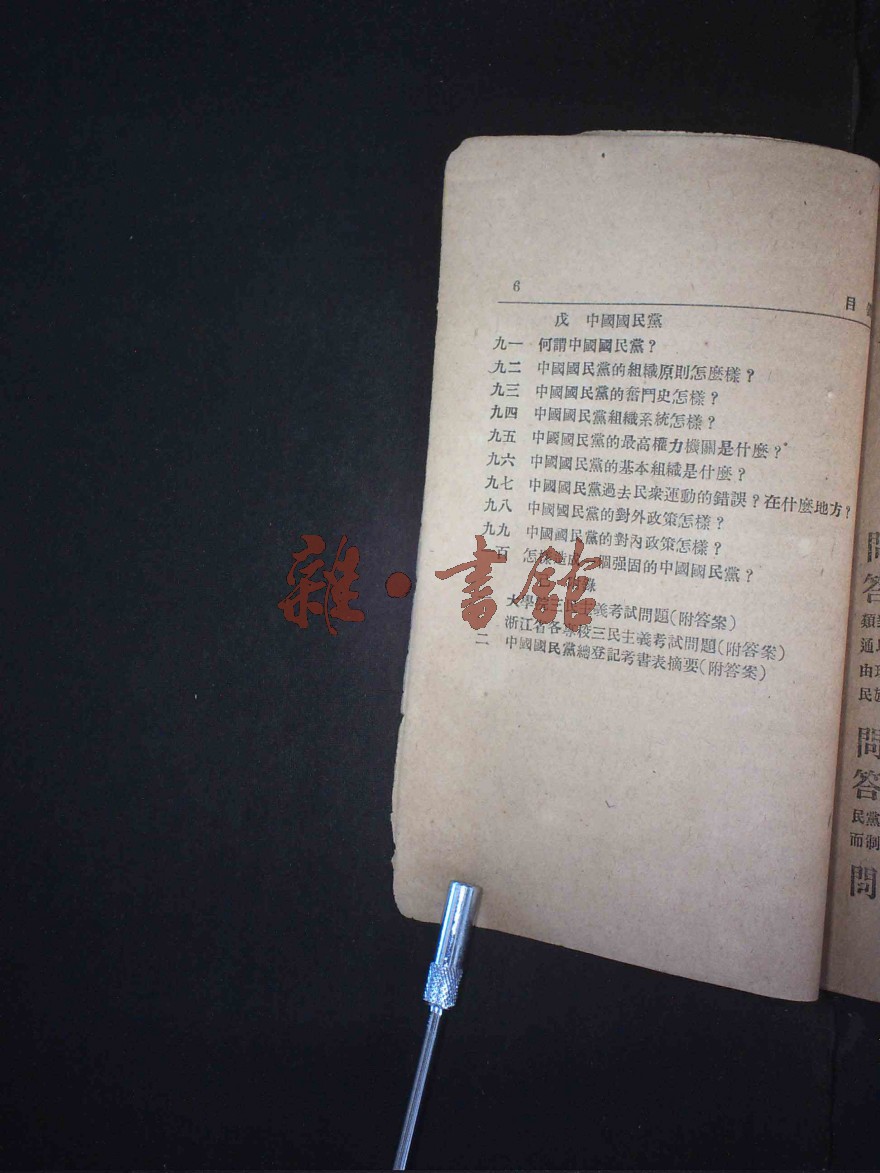 6
目
戊 中國國民黨
九一 何謂中國國民黨？
九二 中國國民黨的組織原則怎麼樣？
九三 中國國民黨的奮鬥史怎樣？
九四 中國國民黨組織系統怎樣？
九五 中國國民黨的最高權力機關是什麼？
九六 中國國民黨的基本組織是什麼？
九七 中國國民黨過去民衆運動的錯誤？在什麼地方？
九八 中國國民黨的對外政策怎樣？
九九 中國國民黨的對內政策怎樣？
百 怎樣造成 個强固的中國國民黨？
錄
大學院三民主義考試問題(附答案)
浙江省各專校三民主義考試問題(附答案)
二 中國國民黨總登記考書表摘要(附答案)
雜·書館
答
類
通
由
民
問
答
民黨
而制
問